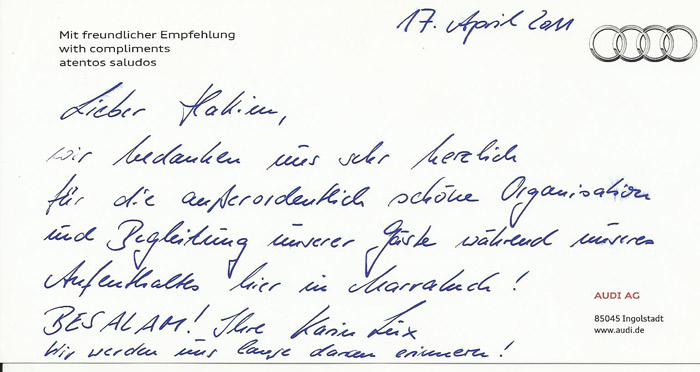 Mit freundlicher Empfehlung
with compliments
atentos saludos
17. April 2011
Lieber Hakim,
wir bedanken uns sehr herzlich
für die außerordentlich schöne Organisation
und Begleitung unserer Gäste während unseres
Aufenthaltes hier in Marrakech!
BESALAM! Ihre Karin
Wir werden uns lange daran erinnern!
AUDI AG
85045 Ingolstadt
www.audi.de